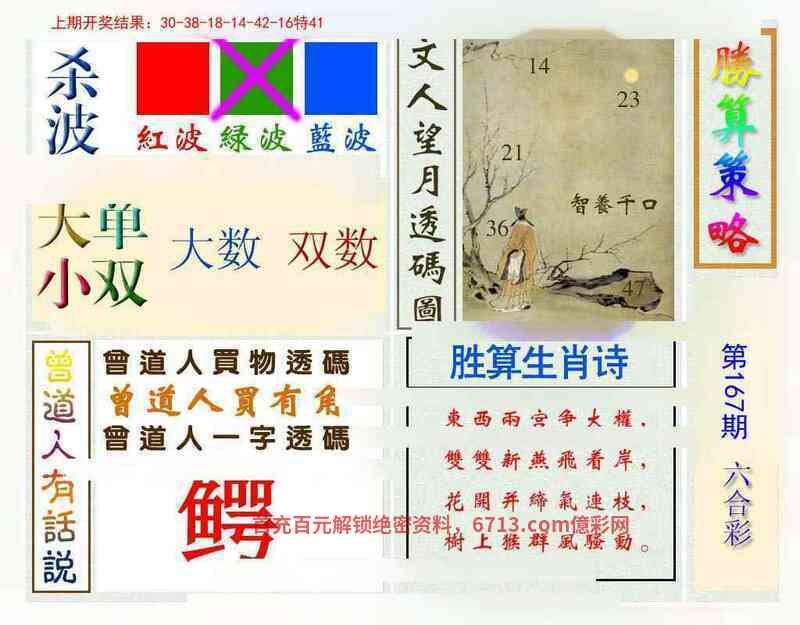 上期开奖结果：30-38-18-14-42-16特41
杀波
紅波 緑波 藍波
大单
小双
大数 双数
文人望月透碼圖
14
23
21
智養千口
36
47
勝算策略
第167期 六合彩
曾道人有話説
曾道人買物透碼
曾道人買有角
曾道人一字透碼
鳄
胜算生肖诗
東西兩宫争大權，
雙雙新燕飛着岸，
花開并締氣連枝，
樹上猴群風騷動。
首充百元解锁绝密资料，6713.com億彩网